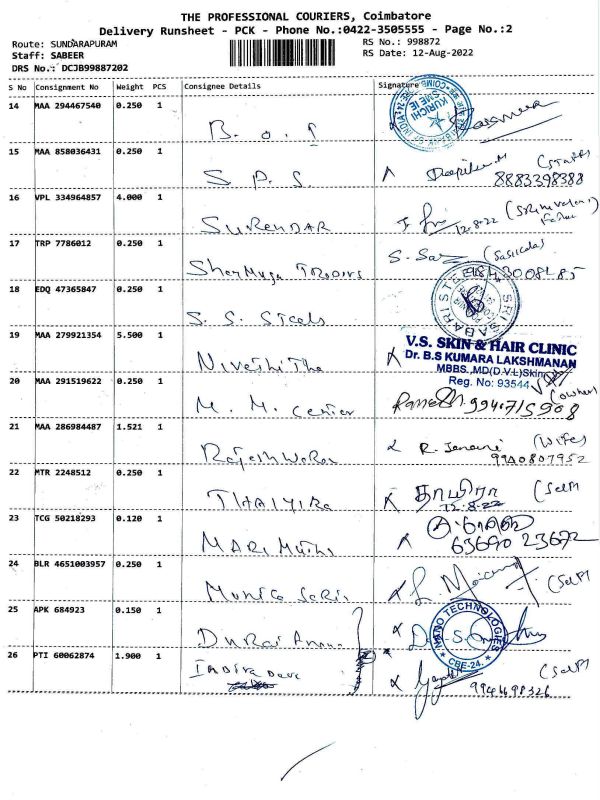 THE PROFESSIONAL COURIERS, Coimbatore
Delivery Runsheet - PCK - Phone No.:0422-3505555 - Page No.:2
Route: SUNDARAPURAM
RS No.: 998872
Staff: SABEER
RS Date: 12-Aug-2022
DRS No.: DCJB99887202
S No Consignment No Weight PCS Consignee Details Signature
14 MAA 294467540 0.250 1
B. O. I
KURICHI
SME IE
15 MAA 858036431 0.250 1
S. P. S. Deepika.M (Staff)
8883398388
16 VPL 334964857 4.000 1
SURENDAR 12-8-22
17 TRP 7786012 0.250 1
S. Sas (Sasikala)
18 EDQ 47365847 0.250 1
S. S. Steels
19 MAA 279921354 5.500 1
V.S. SKIN & HAIR CLINIC
Dr. B.S KUMARA LAKSHMANAN
MBBS.,MD(D.V.L)Skin
Reg. No: 93544
Nivethitha
20 MAA 291519622 0.250 1
M. M. Center (owner)
21 MAA 286984487 1.521 1
Rajeshwaran R. Janani (Wife)
9940807952
22 MTR 2248512 0.250 1
THAIYIRA தாயிரா (Self)
12.8.22
23 TCG 50218293 0.120 1
MARI Muthu
63690 23672
24 BLR 4651003957 0.250 1
(Self)
25 APK 684923 0.150 1
NANO TECHNOLOGIES
CBE-24.
26 PTI 60062874 1.900 1
INDIRA Devi (Self)